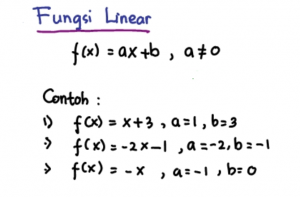 Fungsi Linear
f(x) = ax+b , a≠0
Contoh :
1) f(x) = x+3 , a=1 , b=3
> f(x) = -2x-1 , a=-2, b=-1
> f(x) = -x , a=-1 , b=0